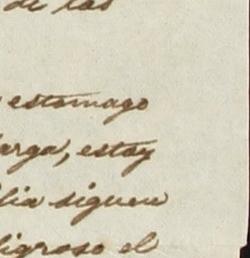 de las
estomago
larga, estoy
lia siguen
ligroso el